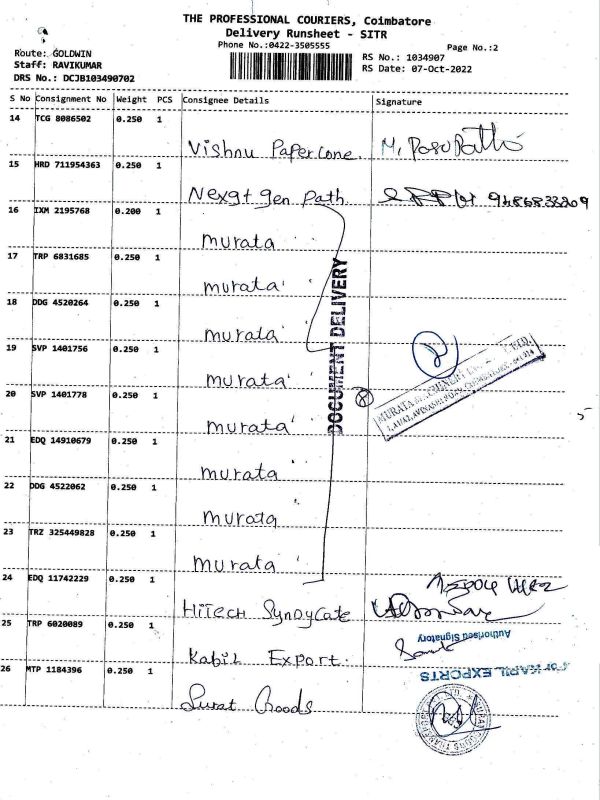 THE PROFESSIONAL COURIERS, Coimbatore
Delivery Runsheet - SITR
Phone No.:0422-3505555
Page No.:2
Route: GOLDWIN
Staff: RAVIKUMAR
DRS No.: DCJB103490702
RS No.: 1034907
RS Date: 07-Oct-2022
S No Consignment No Weight PCS Consignee Details Signature
14 TCG 8086502 0.250 1
Vishnu Papercone.
15 HRD 711954363 0.250 1
Nexgt gen Path.
16 IXM 2195768 0.200 1
murata
17 TRP 6831685 0.250 1
murata
18 DDG 4520264 0.250 1
murata
19 SVP 1401756 0.250 1
murata
20 SVP 1401778 0.250 1
murata
21 EDQ 14910679 0.250 1
murata
22 DDG 4522062 0.250 1
murata
23 TRZ 325449828 0.250 1
murata
DOCUMENT DELIVERY
24 EDQ 11742229 0.250 1
HiTech Syndycate
25 TRP 6020089 0.250 1
Authorised Signatory
Kabil Export.
26 MTP 1184396 0.250 1
For KAPIL EXPORTS
Surat Goods